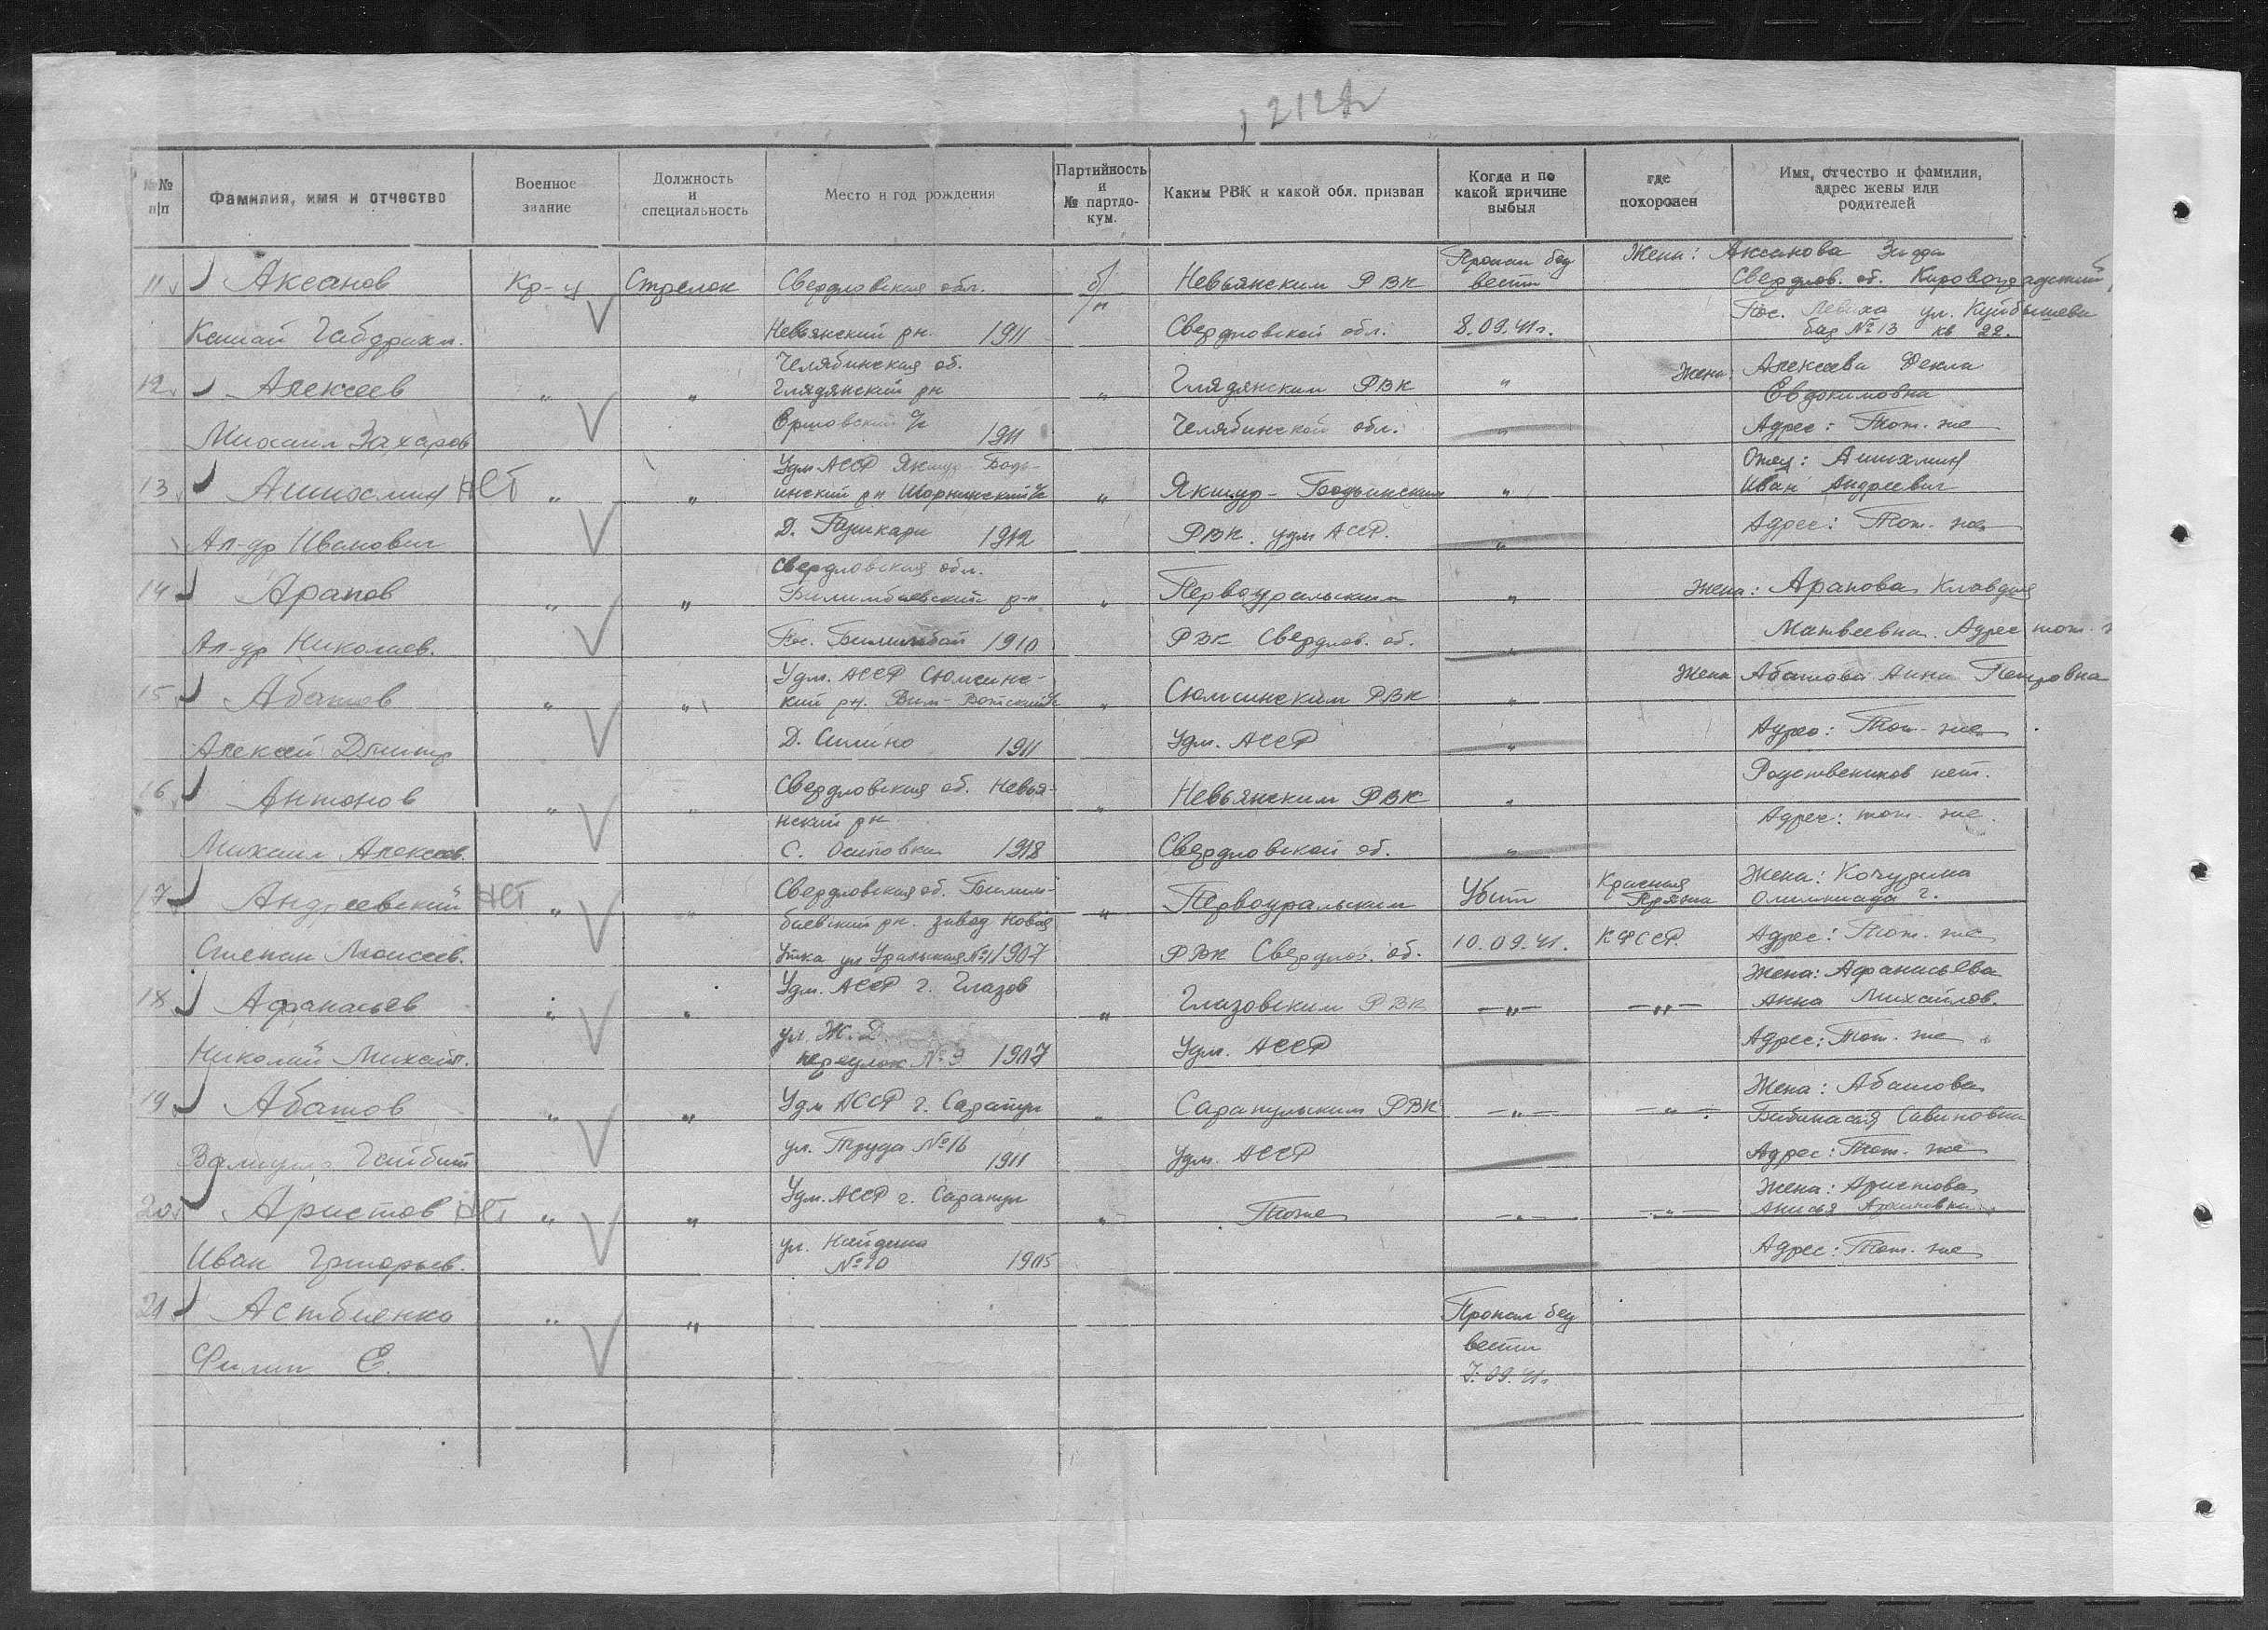 №№ п/п
Фамилия, имя и отчество
Военное звание
Должность и специальность
Место и год рождения
Партийность и № партдокум.
Каким РВК и какой обл. призван
Когда и по какой причине выбыл
где похоронен
Имя, отчество и фамилия, адрес жены или родителей
11 Аксанов Кр-ц Стрелок Свердловская обл. б/п Невьянским РВК Пропал без вести Жена: Аксанова
Свердлов. об. Кировоградский
Невьянский рн. 1911 Свердловской обл. 8.09.41г. Пос. Левиха ул. Куйбышева
№ 13 кв 22.
12 Алексеев " " Челябинская об. " Глядянским РВК " Жена: Алексеева Фекла
Глядянский рн Евдокимовна
Михаил Захаров 1911 Челябинской обл. " Адрес: Тот-же
13 Анихмин НЕТ " " Удм АССР Якшур-Бодь- " Якшур-Бодьинским " Отец: Анихмин
инский рн Иван Андреевич
Ал-др Иванович Д. 1912 РВК. удм АССР. " Адрес: Тот-же
14 Арапов " " Свердловская обл. " Первоуральским " Жена: Арапова Клавдия
Билимбаевский р-н
Ал-др Николаев. Пос. Билимбай 1910 РВК Свердлов. об. " Матвеевна. Адрес тот-
15 Абашов " " Удм. АССР Сюмсинс- " Сюмсинским РВК " Жена Абашова Анна Петровна
кий рн.
Алексей Дмитр Д. 1911 Удм. АССР " Адрес: Тот-же
16 Антонов " " Свердловская об. Невья- " Невьянским РВК " Родствеников нет.
нский рн Адрес: тот-же.
Михаил Алексеев. С. Осиновка 1918 Свердловской об. "
17 Андреевский НЕТ " " Свердловская об. Билим- " Первоуральским Убит Красная Жена: Кочурина
баевский рн. завод Новая Пряжа Олимпиада Г.
Степан Моисеев. Утка ул Уральская № 1 1907 РВК Свердлов. об. 10.09.41. КФССР. Адрес: Тот-же
18 Афанасьев " " Удм. АССР г. Глазов " Глазовским РВК —"— —"— Жена: Афанасьева
Анна Михайлов.
Николай Михайл. ул. Ж.Д. Удм. АССР Адрес: Тот-же
переулок № 9 1907
19 Абашов " " Удм АССР г. Сарапул " Сарапульским РВК —"— —"— Жена: Абашова
Савиновна
ул. Труда № 16 1911 Удм. АССР Адрес: Тот-же
20 Аристов НЕТ " " Удм. АССР г. Сарапул " Тоже —"— —"— Жена: Аристова
Анисья
Иван Григорьев. ул. 1905 Адрес: Тот-же
21 " " Пропал без
Филип Е. вести
7.09.41г.